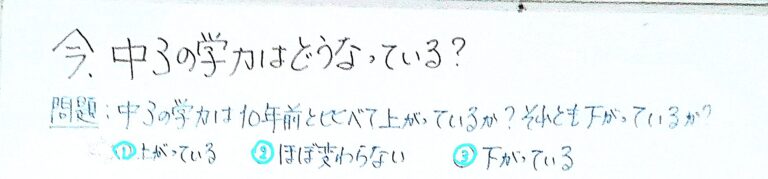 今、中3の学力はどうなっている?
問題:中3の学力は10年前と比べて上がっているか?それとも下がっているか?
①上がっている ②ほぼ変わらない ③下がっている